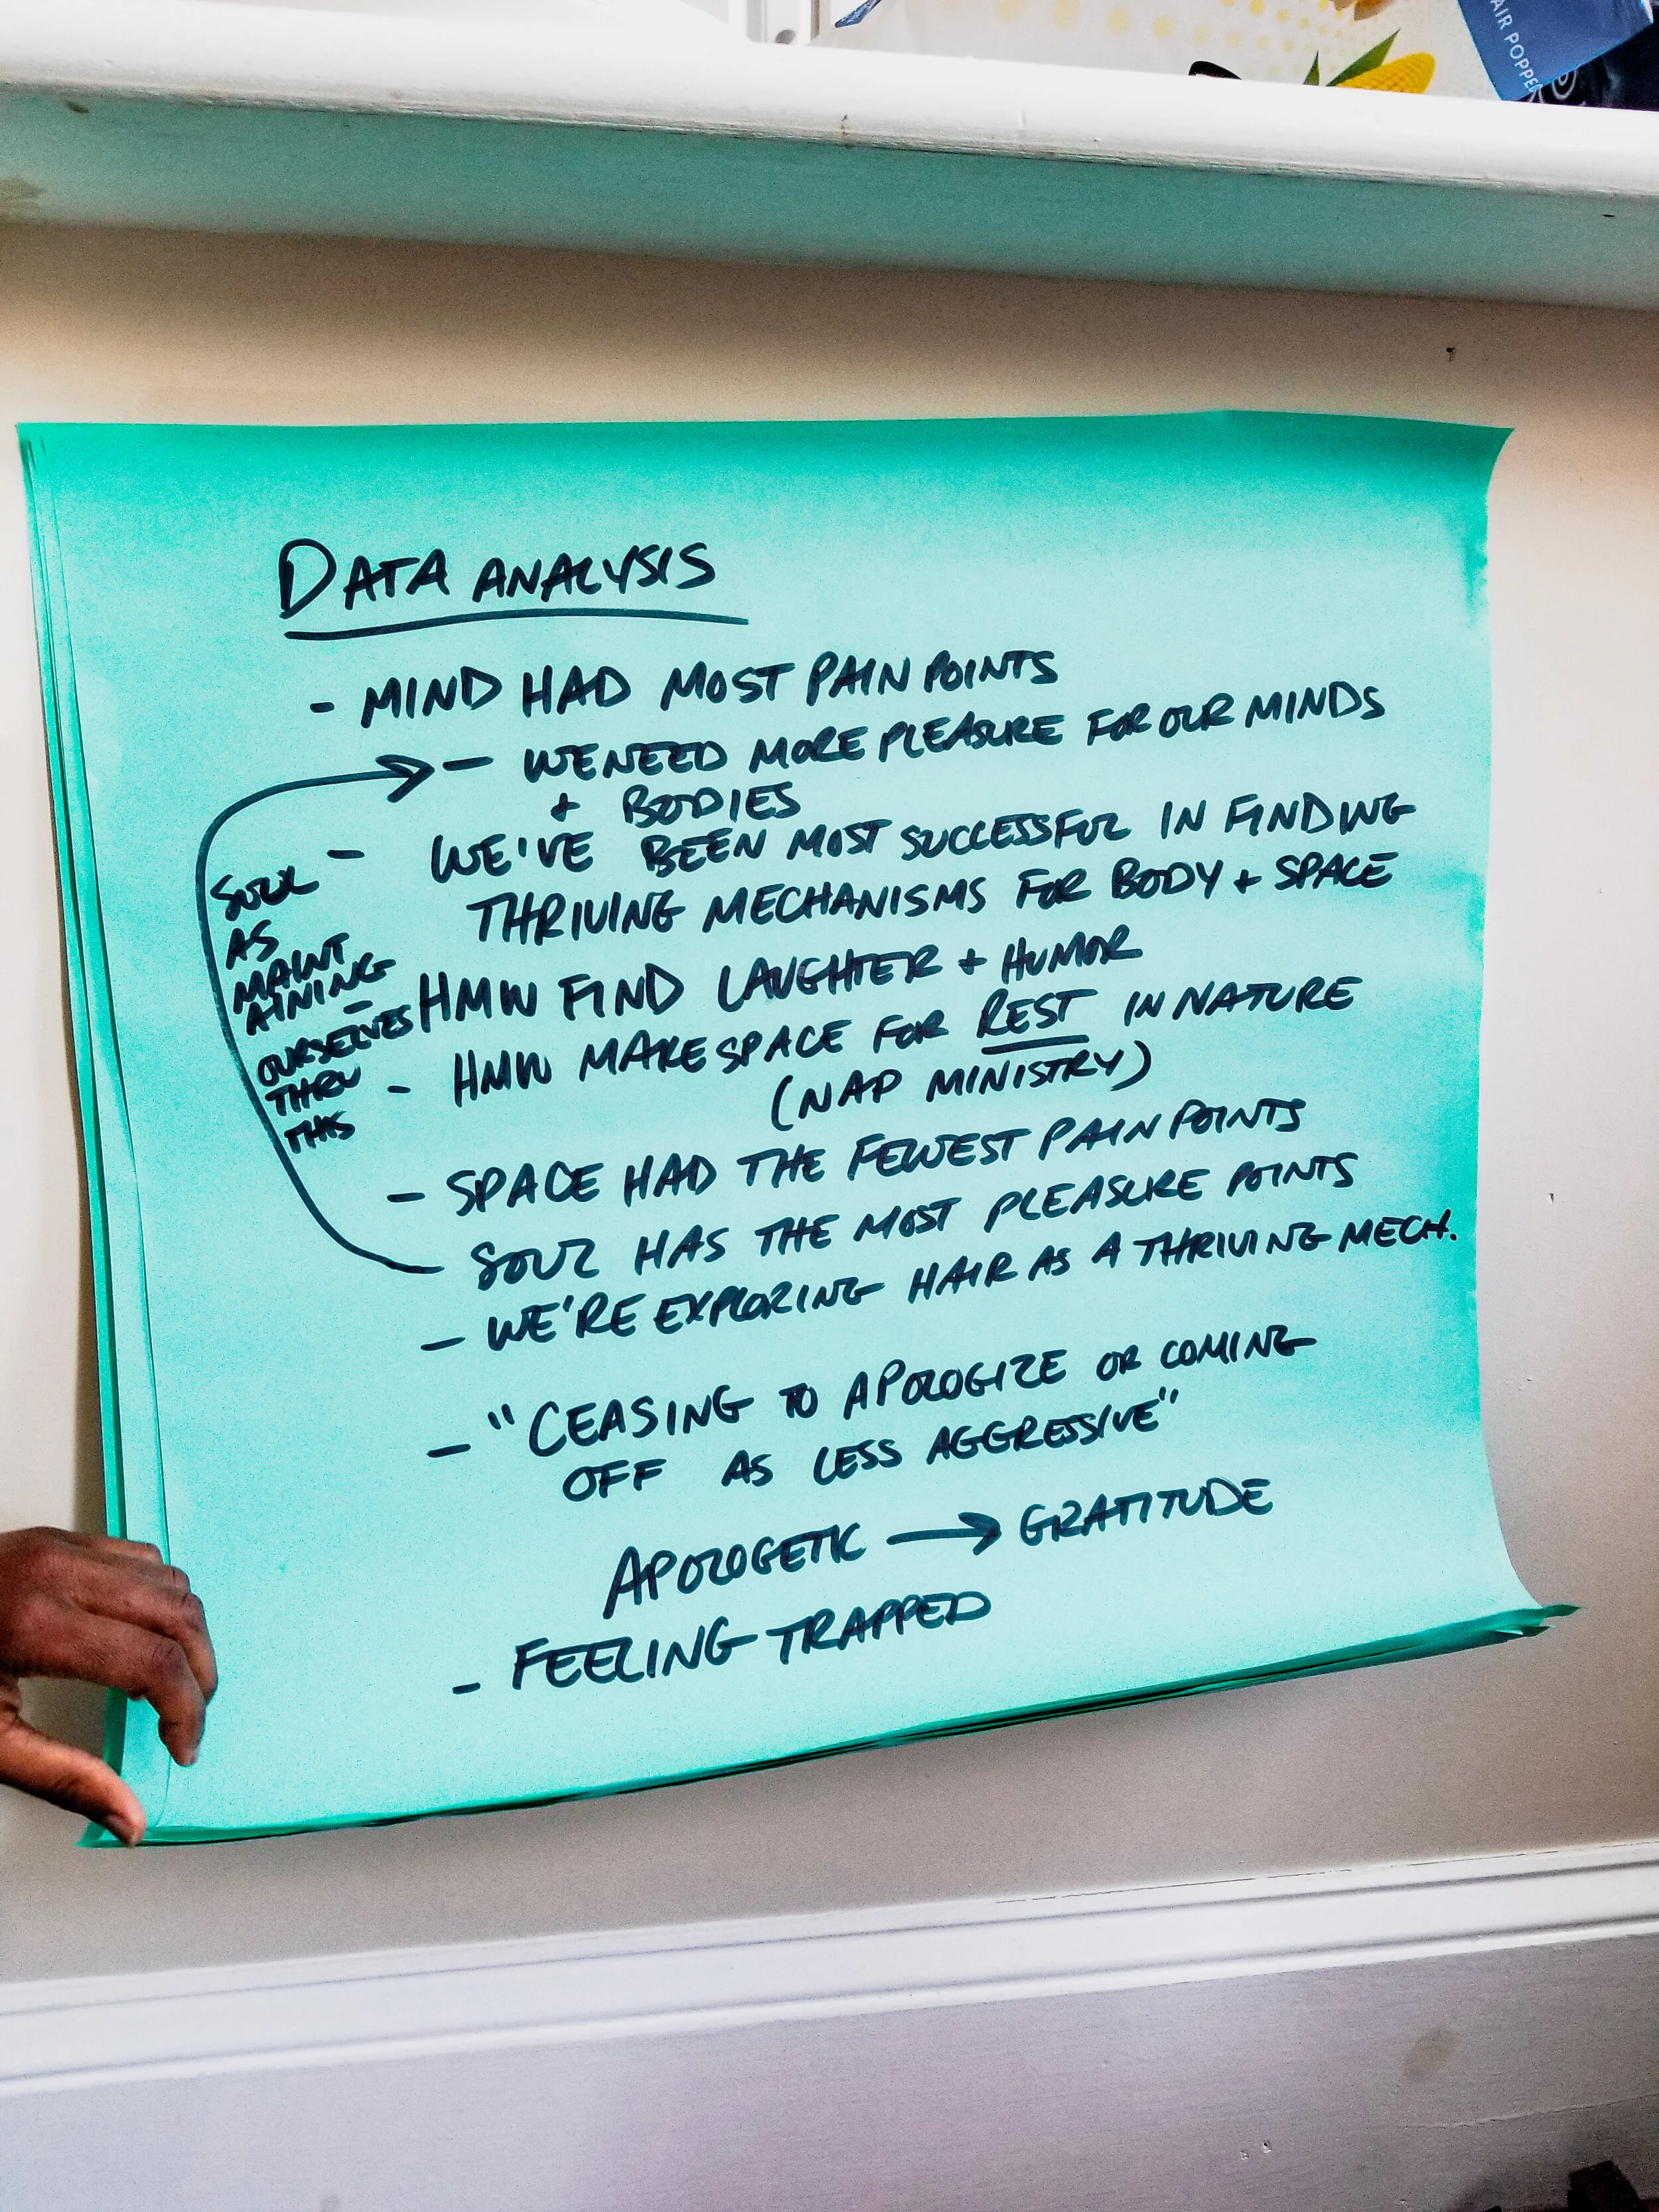 AIR POPPED
DATA ANALYSIS
- MIND HAD MOST PAIN POINTS
- WE NEED MORE PLEASURE FOR OUR MINDS
+ BODIES
- WE'VE BEEN MOST SUCCESSFUL IN FINDING
THRIVING MECHANISMS FOR BODY + SPACE
- HMW FIND LAUGHTER + HUMOR
- HMW MAKE SPACE FOR REST IN NATURE
(NAP MINISTRY)
- SPACE HAD THE FEWEST PAIN POINTS
SOUL HAS THE MOST PLEASURE POINTS
- WE'RE EXPLORING HAIR AS A THRIVING MECH.
- "CEASING TO APOLOGIZE OR COMING
OFF AS LESS AGGRESSIVE"
APOLOGETIC → GRATITUDE
- FEELING TRAPPED
SOUL
AS
MAINT
AINING
OURSELVES
THRU
THIS